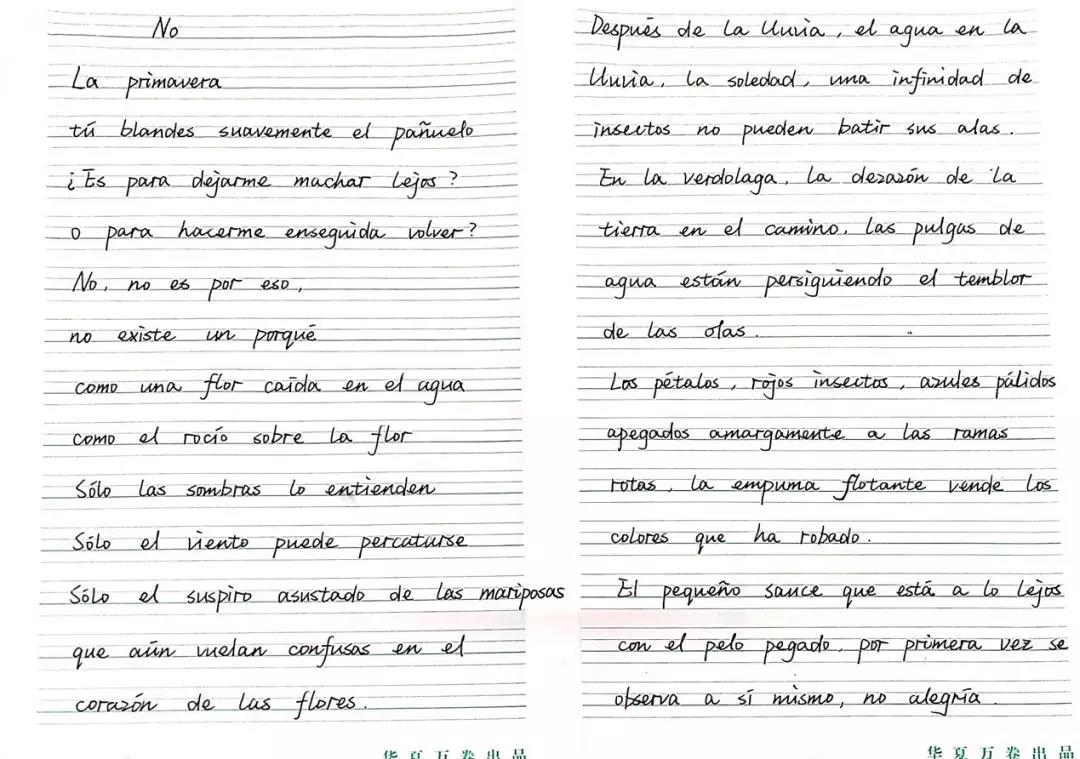 No
La primavera
tú blandes suavemente el pañuelo
¿Es para dejarme machar lejos?
o para hacerme enseguida volver?
No, no es por eso,
no existe un porqué
como una flor caída en el agua
como el rocío sobre la flor
Sólo las sombras lo entienden
Sólo el viento puede percaturse
Sólo el suspiro asustado de las mariposas
que aún vuelan confusas en el
corazón de las flores.
华夏万卷出品
Después de la lluvia, el agua en la
lluvia, la soledad, una infinidad de
insectos no pueden batir sus alas.
En la verdolaga, la desazón de la
tierra en el camino, las pulgas de
agua están persiguiendo el temblor
de las olas.
Los pétalos, rojos insectos, azules pálidos
apegados amargamente a las ramas
rotas, la empuma flotante vende los
colores que ha robado.
El pequeño sauce que está a lo lejos
con el pelo pegado, por primera vez se
observa a sí mismo, no alegría.
华夏万卷出品